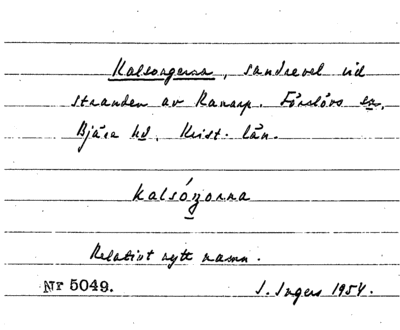 Kalsongerna, sandrevel vid
stranden av Ranarp. Förslövs sn,
Bjäre hd, Krist. län.
kalsóŋorna
Relativt nytt namn.
Nr 5049.
I. Ingers 1954.